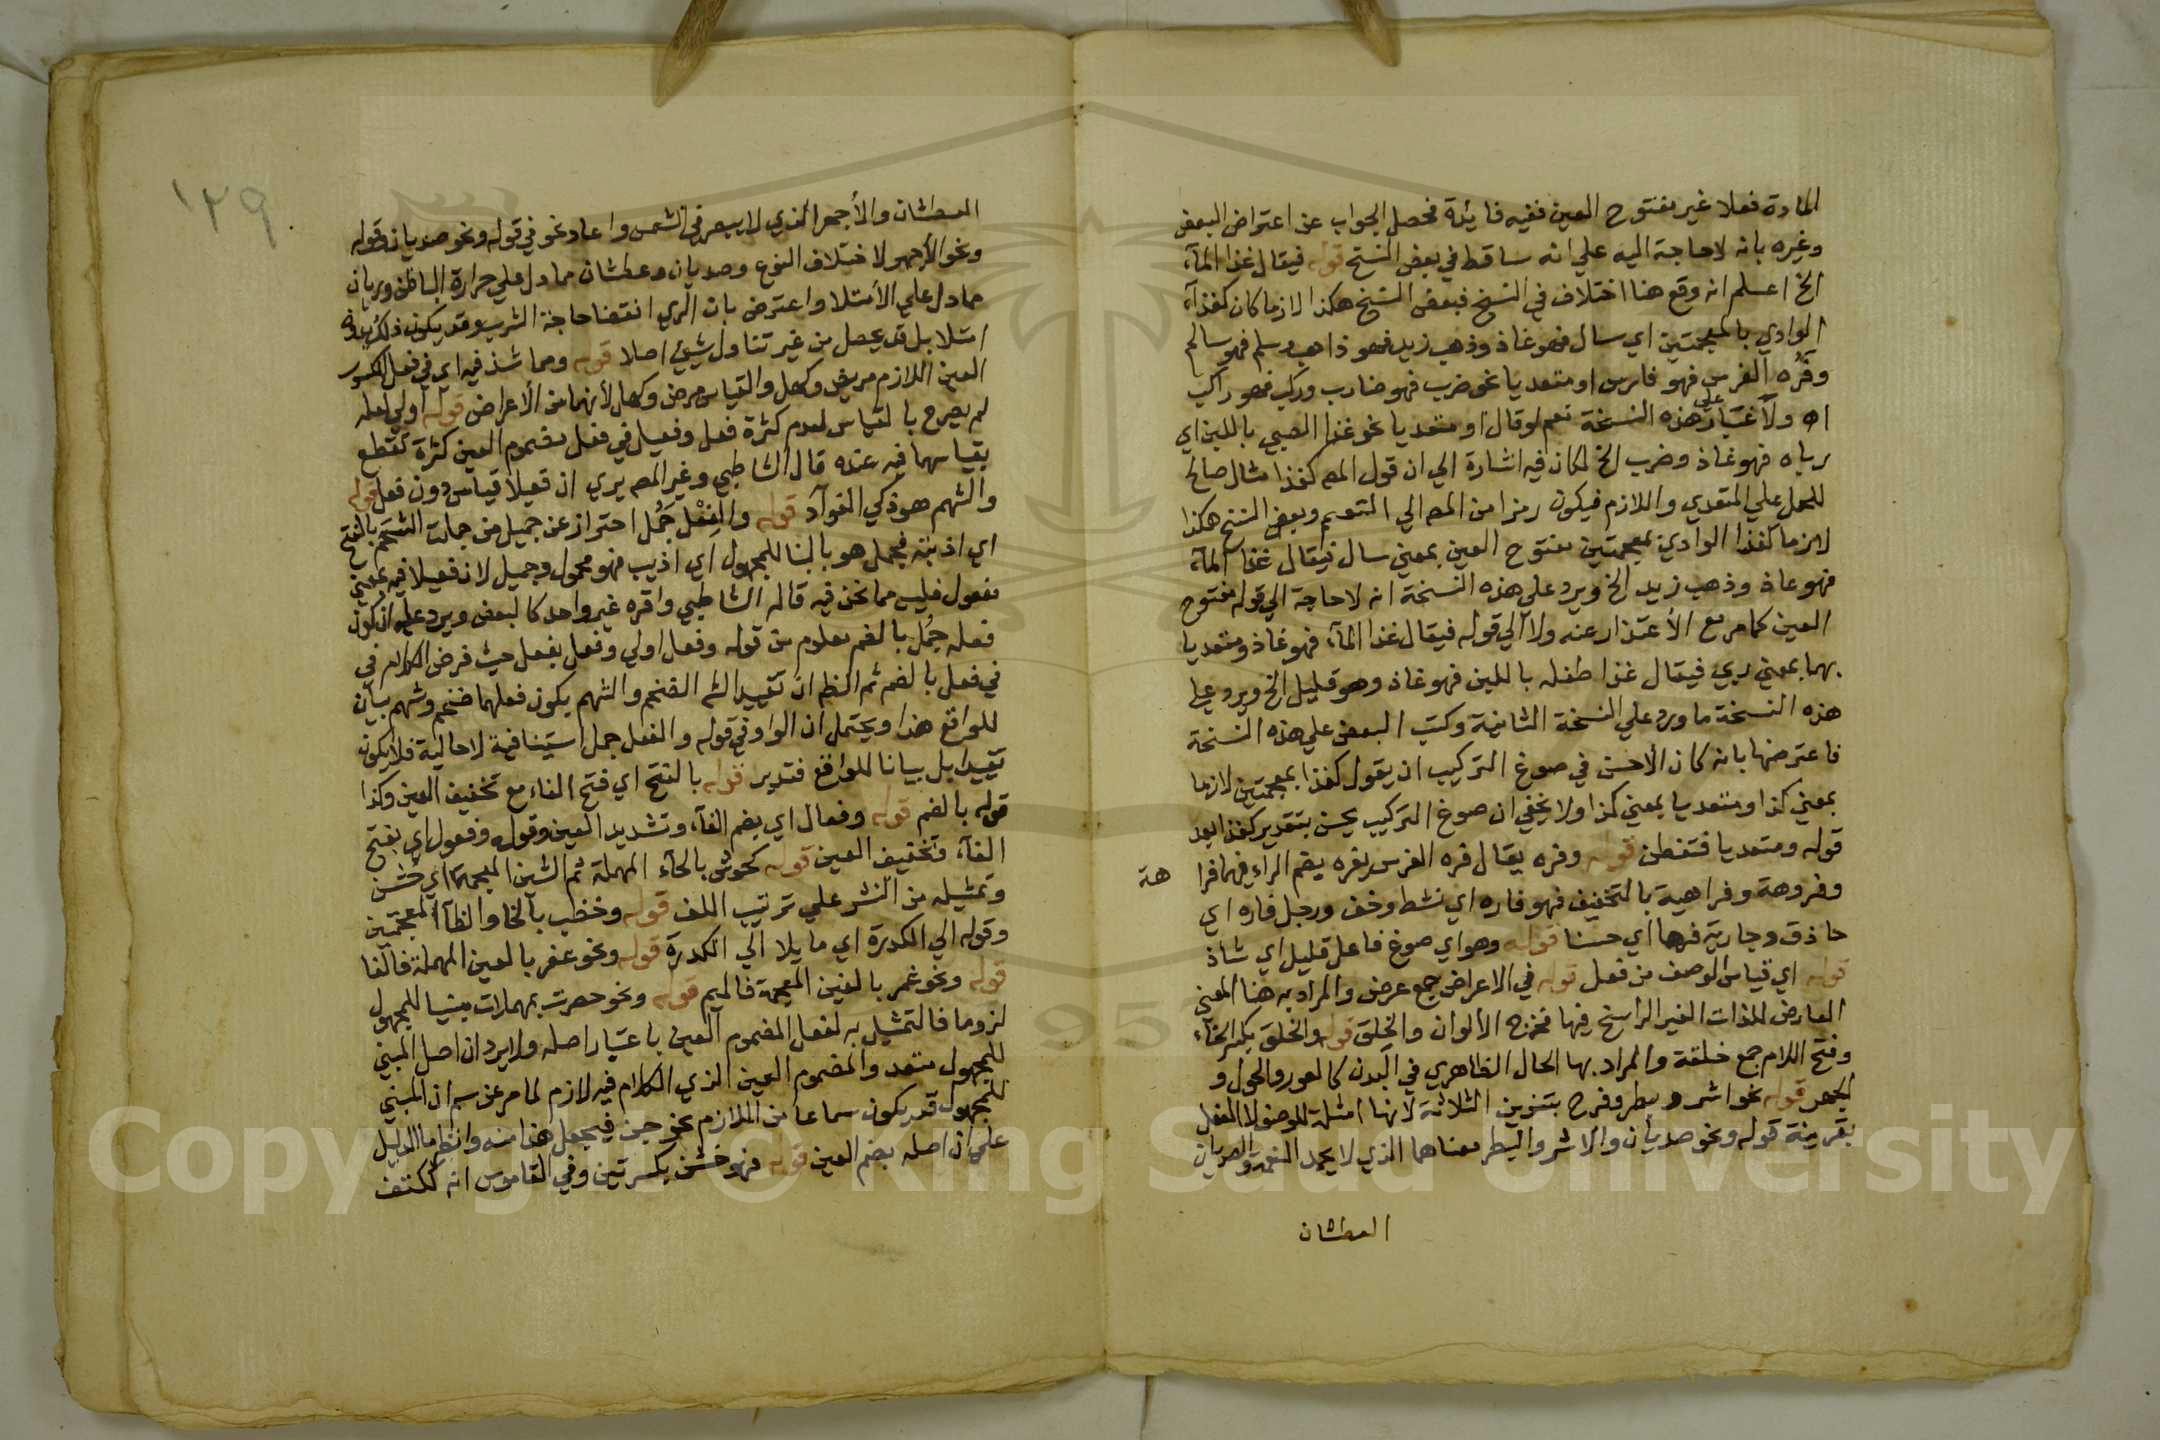 المادة فعلا غير مفتوح العين ففيه فائدة فحصل الجواب عن اعتراض البعض
وغيره بانه لا حاجة اليه علي انه ساقط في بعض النسخ قوله فيقال غذا المآء
الخ اعلم انه وقع هنا اختلاف في النسخ فبعض النسخ هكذا لازما كان كغذآء
الوادي بالمعجمتين اي سال فهو غاذ وذهب زيد فهو ذاهب وسلم فهو سالم
وفَرُه الفرس فهو فاره او متعديا نحو ضرب فهو ضارب وركب فهو راكب
اه ولا غبار علي هذه النسخة نعم لو قال او متعديا نحو غذا الصبي باللبن اي
رباه فهو غاذ وضرب الخ لكان فيه اشارة الي ان قول المص كغذا مثال صالح
للحمل علي المتعدي واللازم فيكون رمزا من المص الي التعميم وبعض النسخ هكذا
لازما كغذا الوادي بمعجمتين مفتوح العين بمعني سال فيقال غذا المآء
فهو غاذ وذهب زيد الخ ويرد علي هذه النسخة انه لا حاجة الي قوله مفتوح
العين كما مر مع الأعتذار عنه ولا الي قوله فيقال غذا المآء فهو غاذ ومتعديا
بهما بمعني ربي فيقال غذا طفله باللبن فهو غاذ وهو قليل الخ ويرد علي
هذه النسخة ما ورد علي النسخة الثانية وكتب البعض علي هذه النسخة
فاعترضها بانه كان الأحسن في صوغ التركيب ان يقول كغذا بمعجمتين لازما
بمعني كذا ومتعديا بمعني كذا ولا يخفي ان صوغ التركيب يحسن بتقدير كغذا بعد
قوله ومتعديا فتفطن قوله وفره يقال فره الفرس يفره بضم الراء فيهما فرا
هة
وفروهة وفراهية بالتخفيف فهو فاره اي نشط وخف ورجل فاره اي
حاذق وجارية فرها اي حسنا قوله وهو اي صوغ فاعل قليل اي شاذ
قوله اي قياس الوصف من فعل قوله في الاعراض جمع عرض والمراد به هنا المعني
العارض للذات الغير الراسخ فيها فخرج الألوان والخلق قوله والخلق بكسر الخآء
وفتح اللام جمع خلقة والمراد بها الحال الظاهري في البدن كالعور والحول و
الجهر قوله نحو اشر وبطر وفرح بتنوين الثلاثة لأنها امثلة للوصف لا الفعل
بقرينة قوله ونحو صديان والاشر والبطر معناهما الذي لا يحمد النعمة والصديان
العطشان
١٢٩
العطشان والأجهر الذي لا يبصر في الشمس واعاد نحو في قوله ونحو صديان وقوله
ونحو الأجهر لاختلاف النوع وصديان وعطشان مما دل علي حرارة الباطن وريان
مما دل علي الأمتلا واعترض بان الري انقضا حاجة الشرب وقد يكون ذلك بدون
امتلا بل قد يحصل من غير تناول شيئ اصلا قوله ومما شذ فيه اي في فعل المكسور
العين اللازم مريض وكهل والقياس مرض وكهل لأنهما من الأعراض قوله اولي لعله
لم يصرح بالقياس لعدم كثرة فعل وفعيل في فعل مضموم العين كثرة تقطع
بقياسهما فيه عنده قال الشاطبي وغير المص يري ان فعيلا قياس دون فعل قوله
والشهم هو ذكي الفؤاد قوله والفِعْل جَمُل احتراز عن جميل من جملت الشحم بالفتح
اي اذبته فجمل هو بالبنا للمجهول اي اذيب فهو محمول وجميل لان فعيلا فيه بمعني
مفعول فليس مما نحن فيه قاله الشاطبي واقره غير واحد كالبعض ويرد عليه ان كون
فعله جمُل بالضم معلوم من قوله وفعل اولي وفعل بفعل حيث فرض الكلام في
في فعل بالضم ثم الظم ان تقييد الش الضخم والشهم بكون فعلهما ضخم وشهم بيان
للواقع هذا ويحتمل ان الواو في قوله والفعل جمل استينافية لا حالية فلا يكون
تقييدا بل بيانا للواقع فتدبر قوله بالفتح اي فتح الفاء مع تخفيف العين وكذا
قوله بالضم قوله وفعال اي بضم الفآء وتشديد العين وقوله وفعول اي بفتح
الفآء وتخفيف العين قوله كحوش بالحآء المهملة ثم الشين المعجمة اي خشن
وتمثيله من النشر علي ترتيب اللف قوله وخظب بالخا والظآ المعجمتين
وقوله الي الكدرة اي مايلا الي الكدرة قوله ونحو عفر بالعين المهملة فالفا
قوله ونحو غمر بالغين المعجمة فالميم قوله ونحو حصرت بمهملات مبنيا للمجهول
لزوما فالتمثيل به لفعل المضموم العين باعتبار اصله ولا يرد ان اصل المبني
للمجهول متعد والمضموم العين الذي الكلام فيه لازم لما مر عن سم ان المبني
للمجهول قد يكون سماعا من اللازم نحو جن فيجعل هذا منه وانظر ما الدليل
علي ان اصله بضم العين قوله فهو خشن بكسرتين وفي القاموس انه ككتف